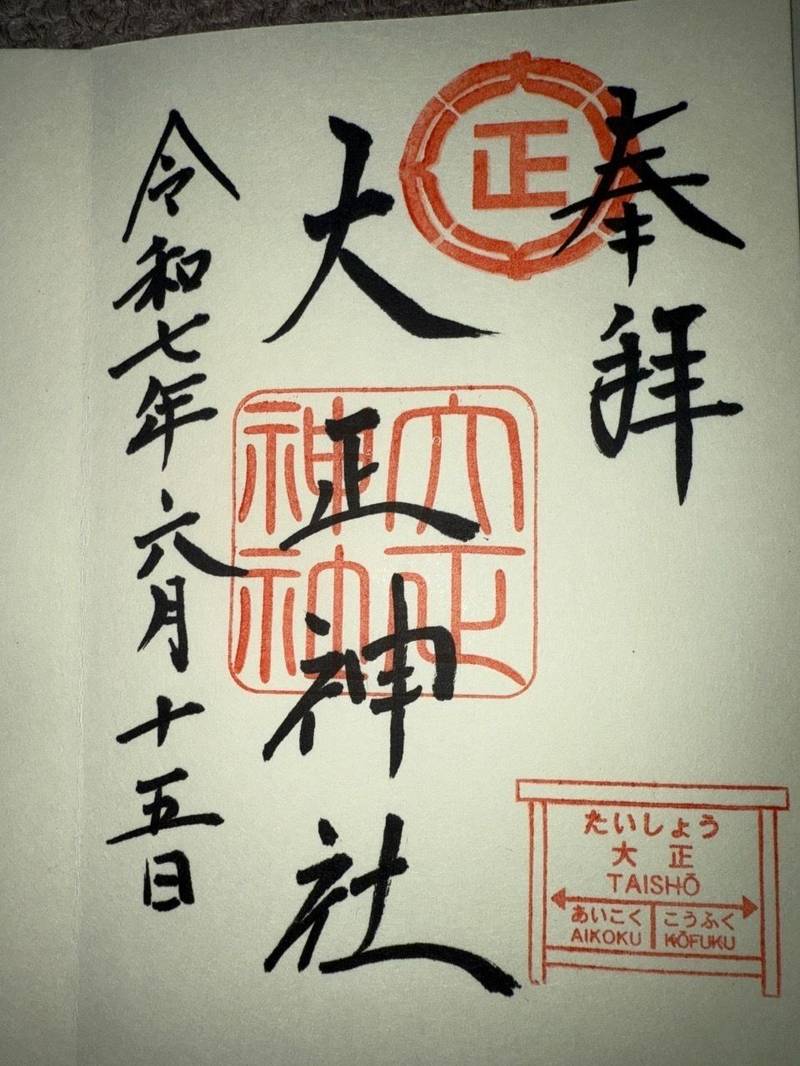 奉拝
正
大正神社
大正
神社
令和七年六月十五日
たいしょう
大正
TAISHŌ
あいこく こうふく
AIKOKU KŌFUKU